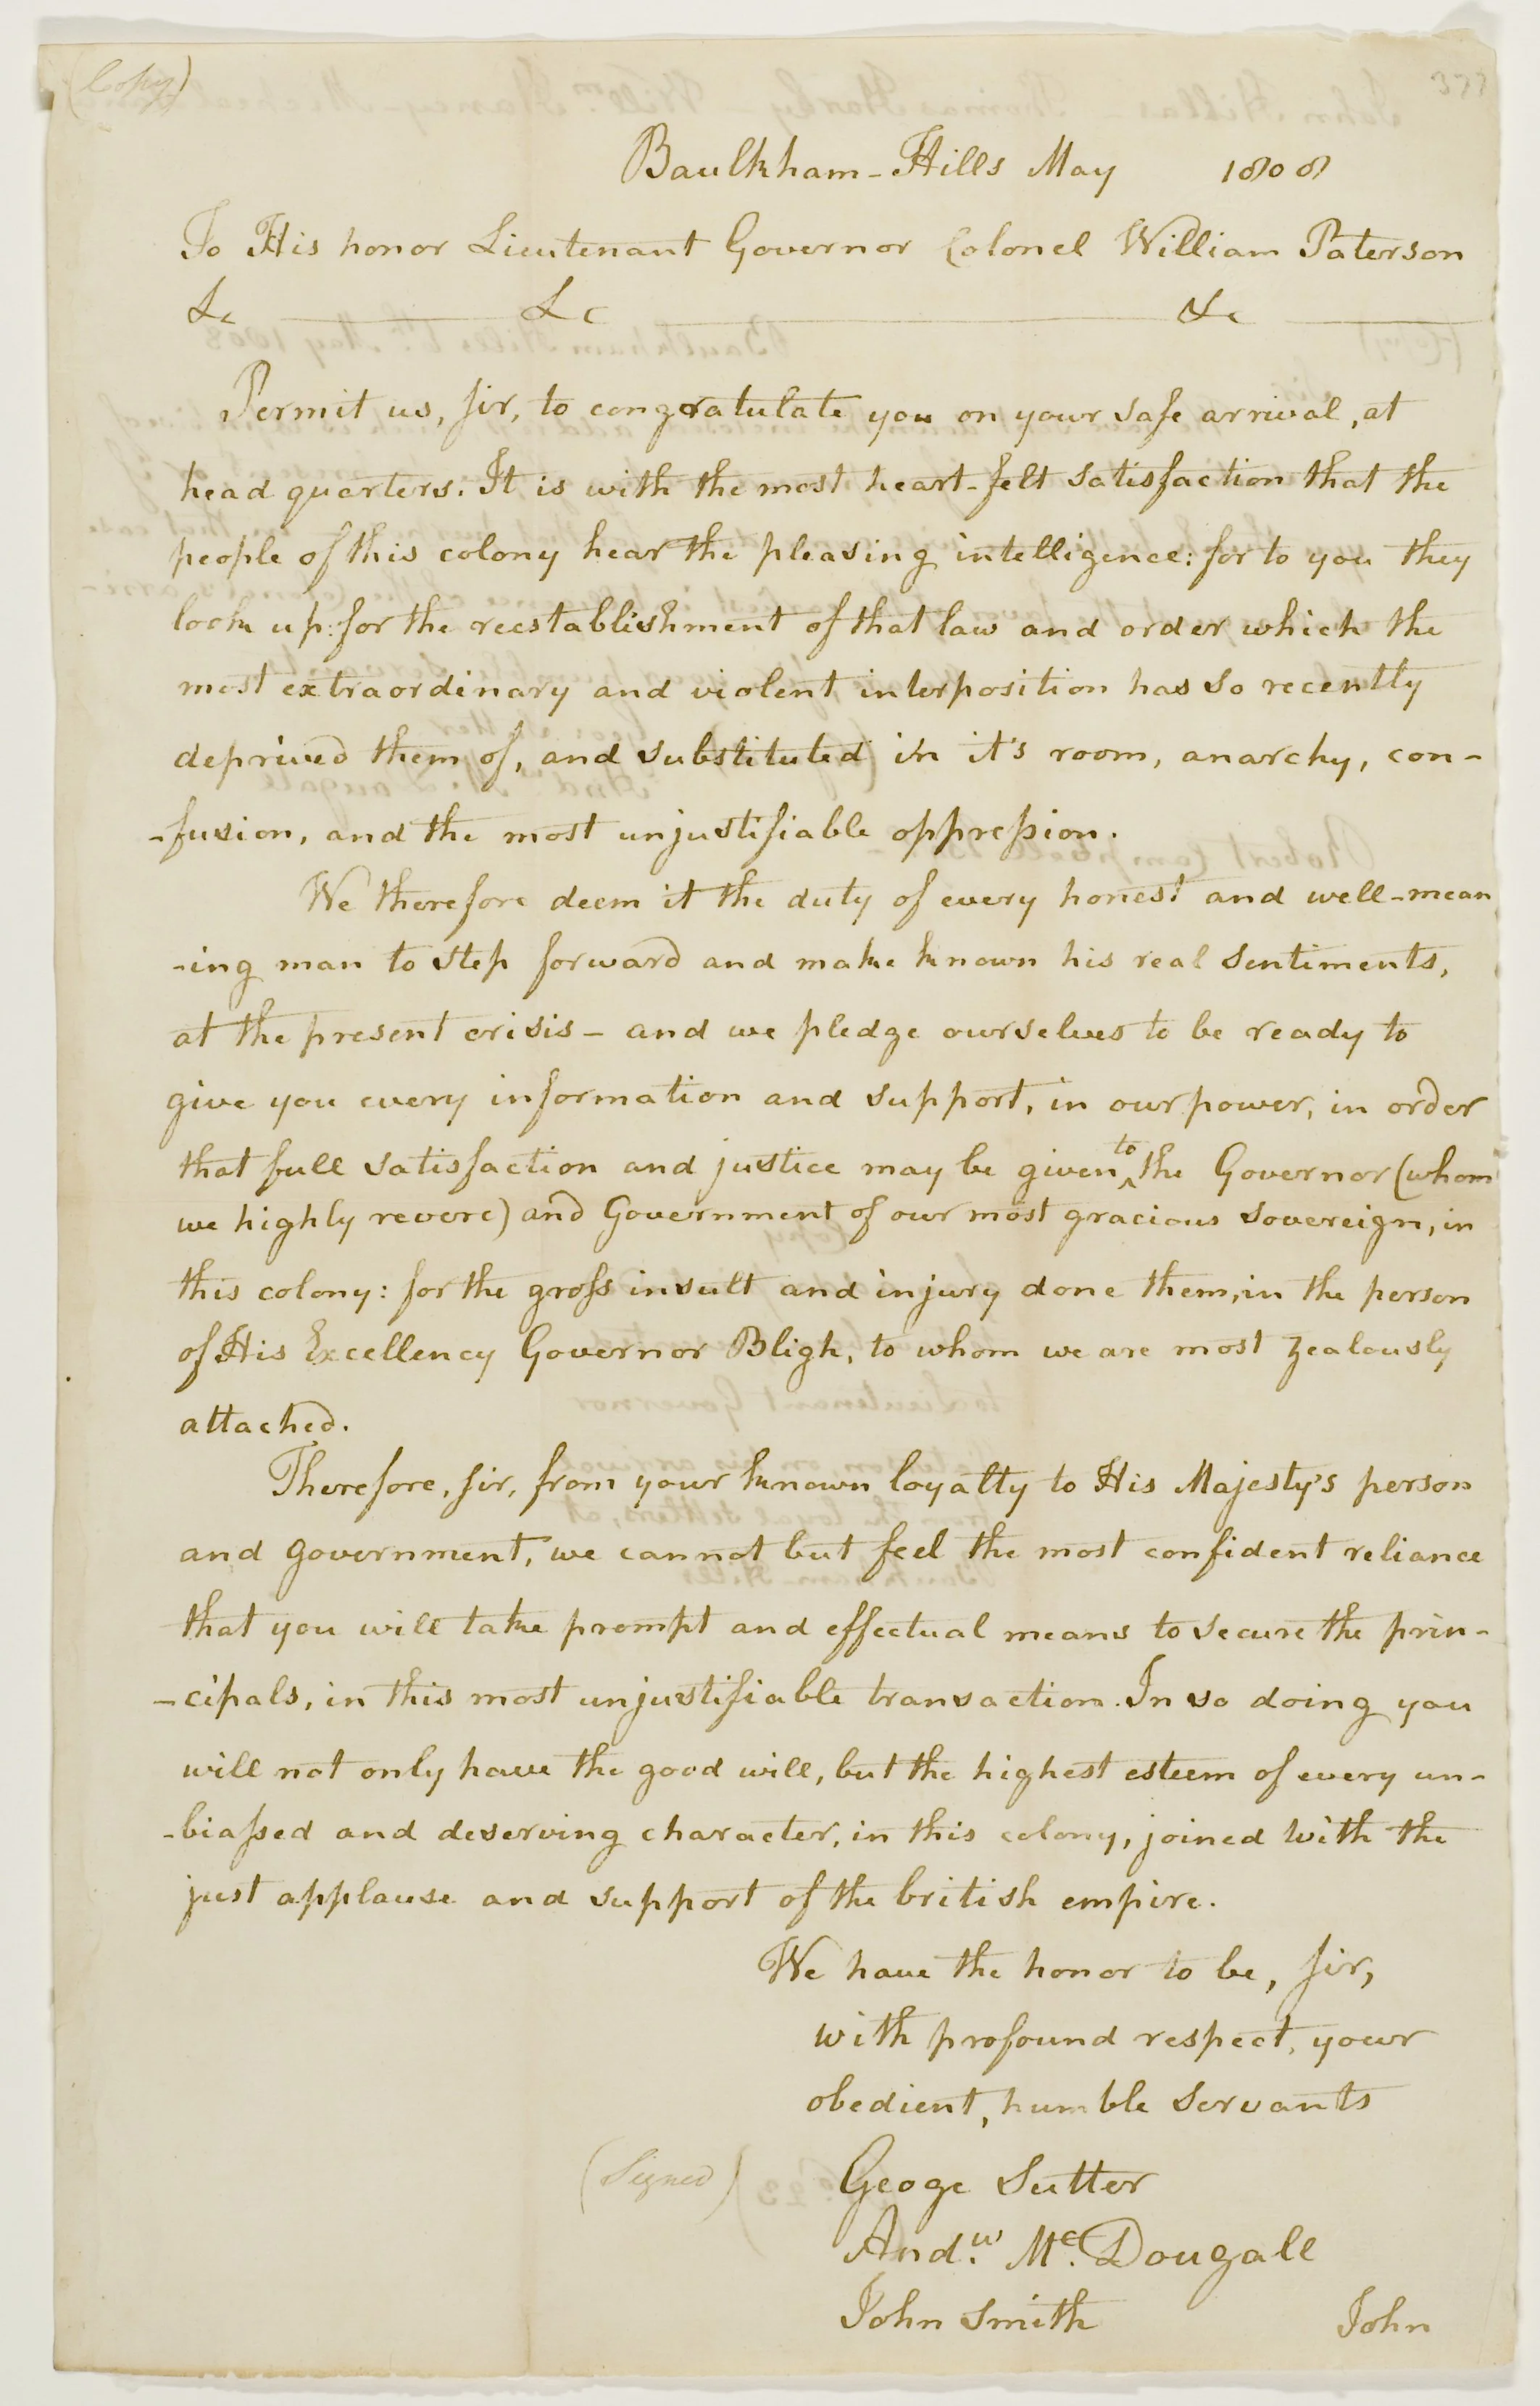 (Copy)
377
Baulkham-Hills May 1808
To His honor Lieutenant Governor Colonel William Paterson
&c &c &c
Permit us, sir, to congratulate you on your safe arrival, at
head quarters. It is with the most heart-felt satisfaction that the
people of this colony hear the pleasing intelligence: for to you they
look up: for the reestablishment of that law and order, which the
most extraordinary and violent interposition has so recently
deprived them of, and substituted in it's room, anarchy, con-
-fusion, and the most unjustifiable oppression.
We therefore deem it the duty of every honest and well-mean
-ing man to step forward and make known his real sentiments,
at the present crisis - and we pledge ourselves to be ready to
give you every information and support, in our power, in order
that full satisfaction and justice may be given to the Governor (whom
we highly revere) and Government of our most gracious sovereign, in
this colony: for the gross insult and injury done them, in the person
of His Excellency Governor Bligh, to whom we are most zealously
attached.
Therefore, sir, from your known loyalty to His Majesty's person
and government, we cannot but feel the most confident reliance
that you will take prompt and effectual means to secure the prin-
-cipals, in this most unjustifiable transaction. In so doing you
will not only have the good will, but the highest esteem of every un-
-biassed and deserving character, in this colony, joined with the
just applause and support of the british empire.
We have the honor to be, sir,
with profound respect, your
obedient, humble servants
(Signed) Geoge Sutter
Andw. Mc. Dougall
John Smith John